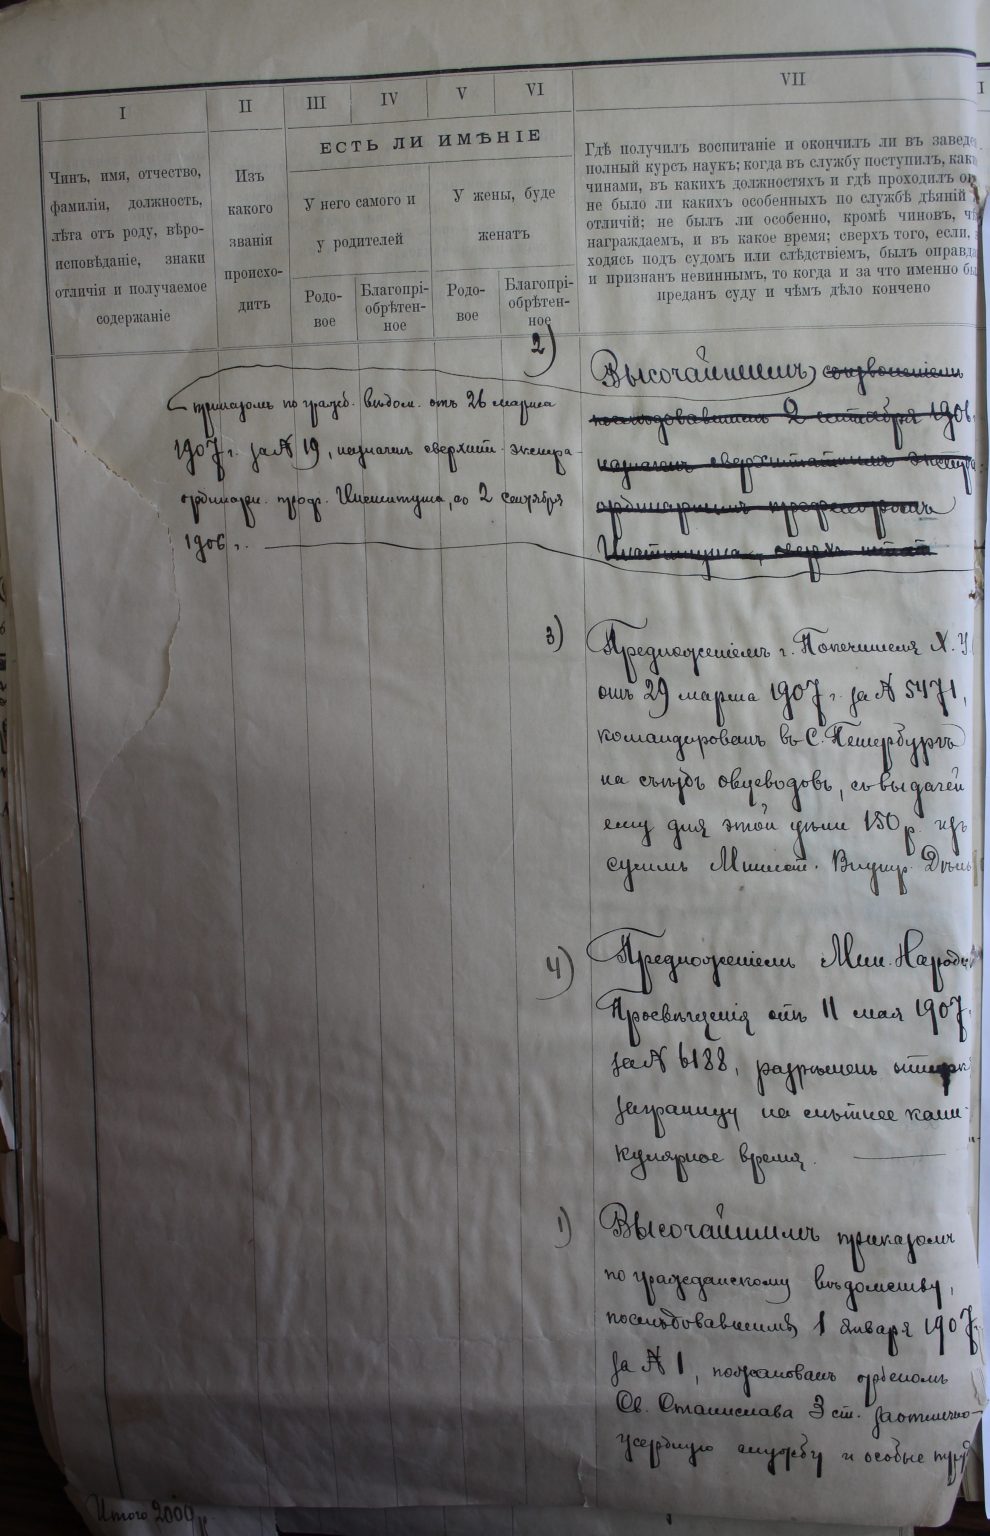 I
II
III
IV
V
VI
VII
ЕСТЬ ЛИ ИМѢНІЕ
Чинъ, имя, отчество,
фамилія, должность,
лѣта отъ роду, вѣро-
исповѣданіе, знаки
отличія и получаемое
содержаніе
Изъ
какого
званія
происхо-
дитъ
У него самого и
у родителей
У жены, буде
женатъ
Родо-
вое
Благопрі-
обрѣтен-
ное
Родо-
вое
Благопрі-
обрѣтен-
ное
Гдѣ получилъ воспитаніе и окончилъ ли въ заведе
полный курсъ наукъ; когда въ службу поступилъ, как
чинами, въ какихъ должностяхъ и гдѣ проходилъ о
не было ли какихъ особенныхъ по службѣ дѣяній
отличій; не былъ ли особенно, кромѣ чиновъ, ч
награждаемъ, и въ какое время; сверхъ того, если,
ходясь подъ судомъ или слѣдствіемъ, былъ оправда
и признанъ невиннымъ, то когда и за что именно бы
преданъ суду и чѣмъ дѣло кончено
2) Высочайшимъ соизволеніемъ
послѣдовавшимъ 2 сентября 1906
назначенъ сверхштатнымъ экстра
ординарнымъ профессоромъ
Института, сверхъ штата
приказомъ по гражд. вѣдом. отъ 26 марта
1907 г. за № 19, назначен сверхшт. экстра-
ординарн. проф. Института, со 2 сентября
1906 г.
3) Предложеніемъ г. Попечителя Х. У.
отъ 29 марта 1907 г. за № 5471,
командированъ въ С. Петербургъ
на съѣздъ овцеводовъ, съ выдачей
ему для этой цѣли 150 р. изъ
суммъ Минист. Внутр. Дѣлъ
4) Предложеніемъ Мин. Народн
Просвѣщенія отъ 11 мая 1907
за № 6188, разрѣшенъ
заграницу на лѣтнее кани-
кулярное время.
1) Высочайшимъ приказомъ
по гражданскому вѣдомству,
послѣдовавшимъ 1 января 1907 г.
за № 1, пожалованъ орденомъ
Св. Станислава 3 ст. за отлично-
усердную службу и особые труд
Итого 2000 р.